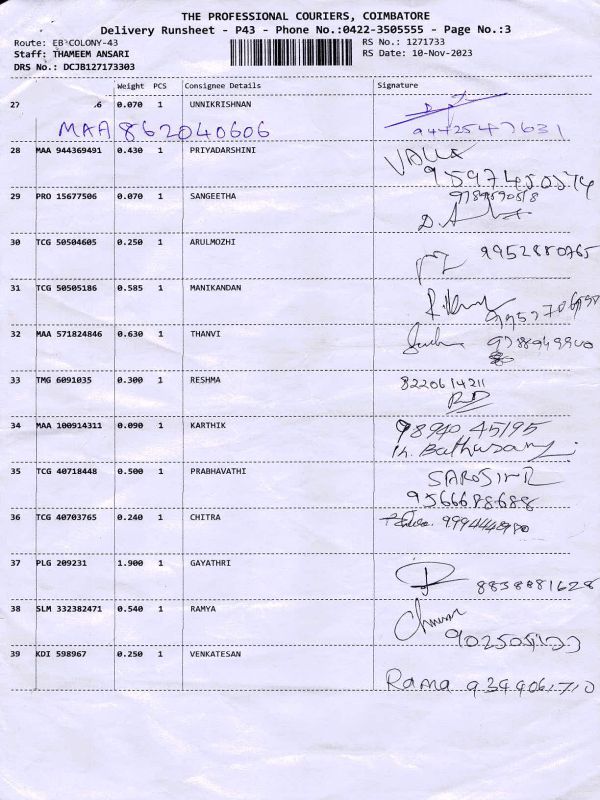 THE PROFESSIONAL COURIERS, COIMBATORE
Delivery Runsheet - P43 - Phone No.:0422-3505555 - Page No.:3
Route: EB COLONY-43 RS No.: 1271733
Staff: THAMEEM ANSARI RS Date: 10-Nov-2023
DRS No.: DCJB127173303
Weight PCS Consignee Details Signature
27 .6 0.070 1 UNNIKRISHNAN
MAA 862040606 9442547631
28 MAA 944369491 0.430 1 PRIYADARSHINI
29 PRO 15677506 0.070 1 SANGEETHA
30 TCG 50504605 0.250 1 ARULMOZHI 9952880765
31 TCG 50505186 0.585 1 MANIKANDAN
32 MAA 571824846 0.630 1 THANVI
33 TMG 6091035 0.300 1 RESHMA 8220614211
34 MAA 100914311 0.090 1 KARTHIK 98940 45195
35 TCG 40718448 0.500 1 PRABHAVATHI
9566688688
36 TCG 40703765 0.240 1 CHITRA
37 PLG 209231 1.900 1 GAYATHRI 8838881628
38 SLM 332382471 0.540 1 RAMYA
39 KDI 598967 0.250 1 VENKATESAN
Rama 9344061710